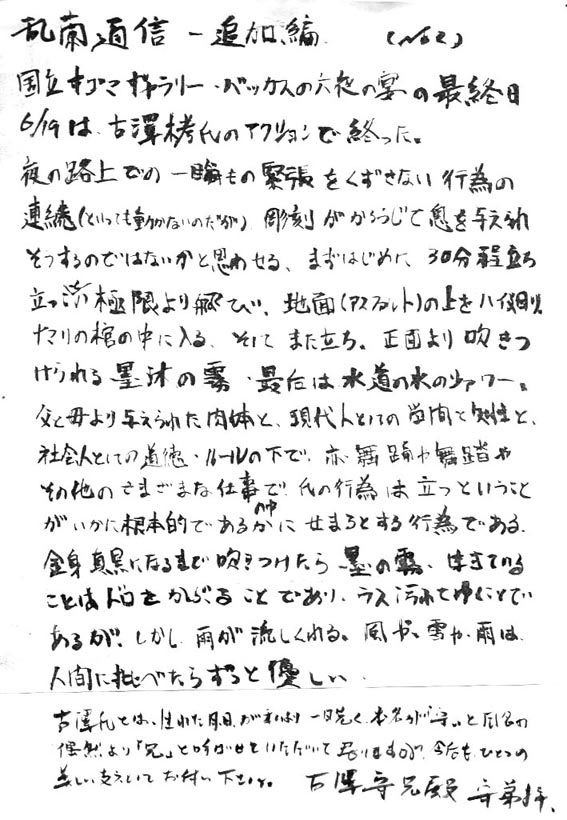 乱蘭通信 － 追加編 (No2)
国立キゴマギャラリー・バッカスの六夜の宴の最終日
6/19は、古澤栲氏のアクションで終った。
夜の路上での一瞬もの緊張をくずさない行為の
連続(といっても動かないのだが) 彫刻がかろうじて息を与えられ
そうするのではないかと思わせる、まずはじめに 30分程立ち
立つ 極限より 、地面(アスファルト)の上を
ナマリの棺の中に入る、そして また立ち。正面より吹きつ
けられる墨汁の霧・最后は水道の水のシャワー。
父と母より与えられた肉体と、現代人としての学問と知性と、
社会人としての道徳・ルールの下で、亦舞踊や舞踏や
その他のさまざまな仕事で 氏の行為は立つということ
がいかに根本的であるかの中に せまろとする行為である。
全身真黒になるまで吹きつけたら墨の霧、生きている
ことはドロをかぶることであり、 汚れてゆくことで
あるが、しかし、雨が流しくれる。風や、雪や、雨は、
人間に比べたらずっと優しい、
古澤氏とは、生れた月日が私より一日先く、本名が「守」と同名の
偶然より「兄」と呼ばせていただいて 、今后も、ひとつの
美しい支えとして お付い下さい。 古澤守兄殿 守弟拝、